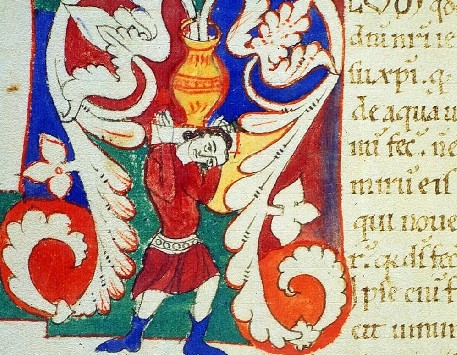 dni nri ie
su xpi. q
de aqua u
nū fec. ne
mirū eis
qui noue
r̄. q. ds fec
Ipse eni f
cit uinum